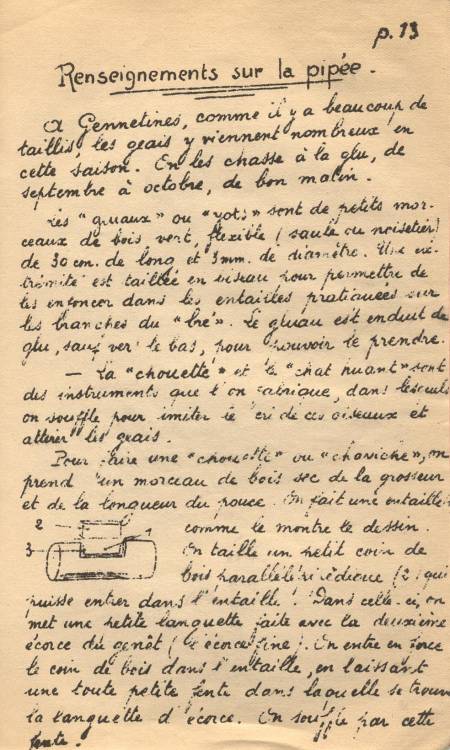 p. 13
Renseignements sur la pipée.
A Gennetines, comme il y a beaucoup de
taillis, les geais y viennent nombreux en
cette saison. En les chasse à la glu, de
septembre à octobre, de bon matin.
Les "gluaux" ou sont de petits mor-
ceaux de bois vert, flexible (saule ou noisetier)
de 30 cm. de long et 3mm. de diamètre. Une ex-
trémité est taillée en biseau pour permettre de
les enfoncer dans les entailles pratiquées sur
les branches du Le gluau est enduit de
glu, sauf vers le bas, pour pouvoir le prendre.
— La "chouette" et le "chat huant" sont
des instruments que l'on fabrique, dans lesquels
on souffle pour imiter le cri de ces oiseaux et
attirer les geais.
Pour faire une "chouette" ou "chaviche", on
prend un morceau de bois sec de la grosseur
et de la longueur du pouce. On fait une entaille
comme le montre le dessin.
On taille un petit coin de
bois parallélépipédique (2) qui
puisse entrer dans l'entaille. Dans celle-ci, on
met une petite languette faite avec la deuxième
écorce du genêt (l'écorce fine). On entre en force
le coin de bois dans l'entaille, en laissant
une toute petite fente dans laquelle se trouve
la languette d'écorce. On souffle par cette
fente.
2
1
3